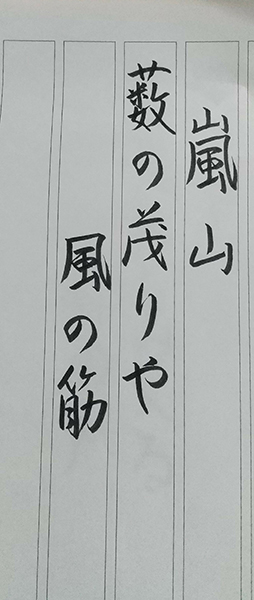 嵐山
藪の茂りや
風の筋